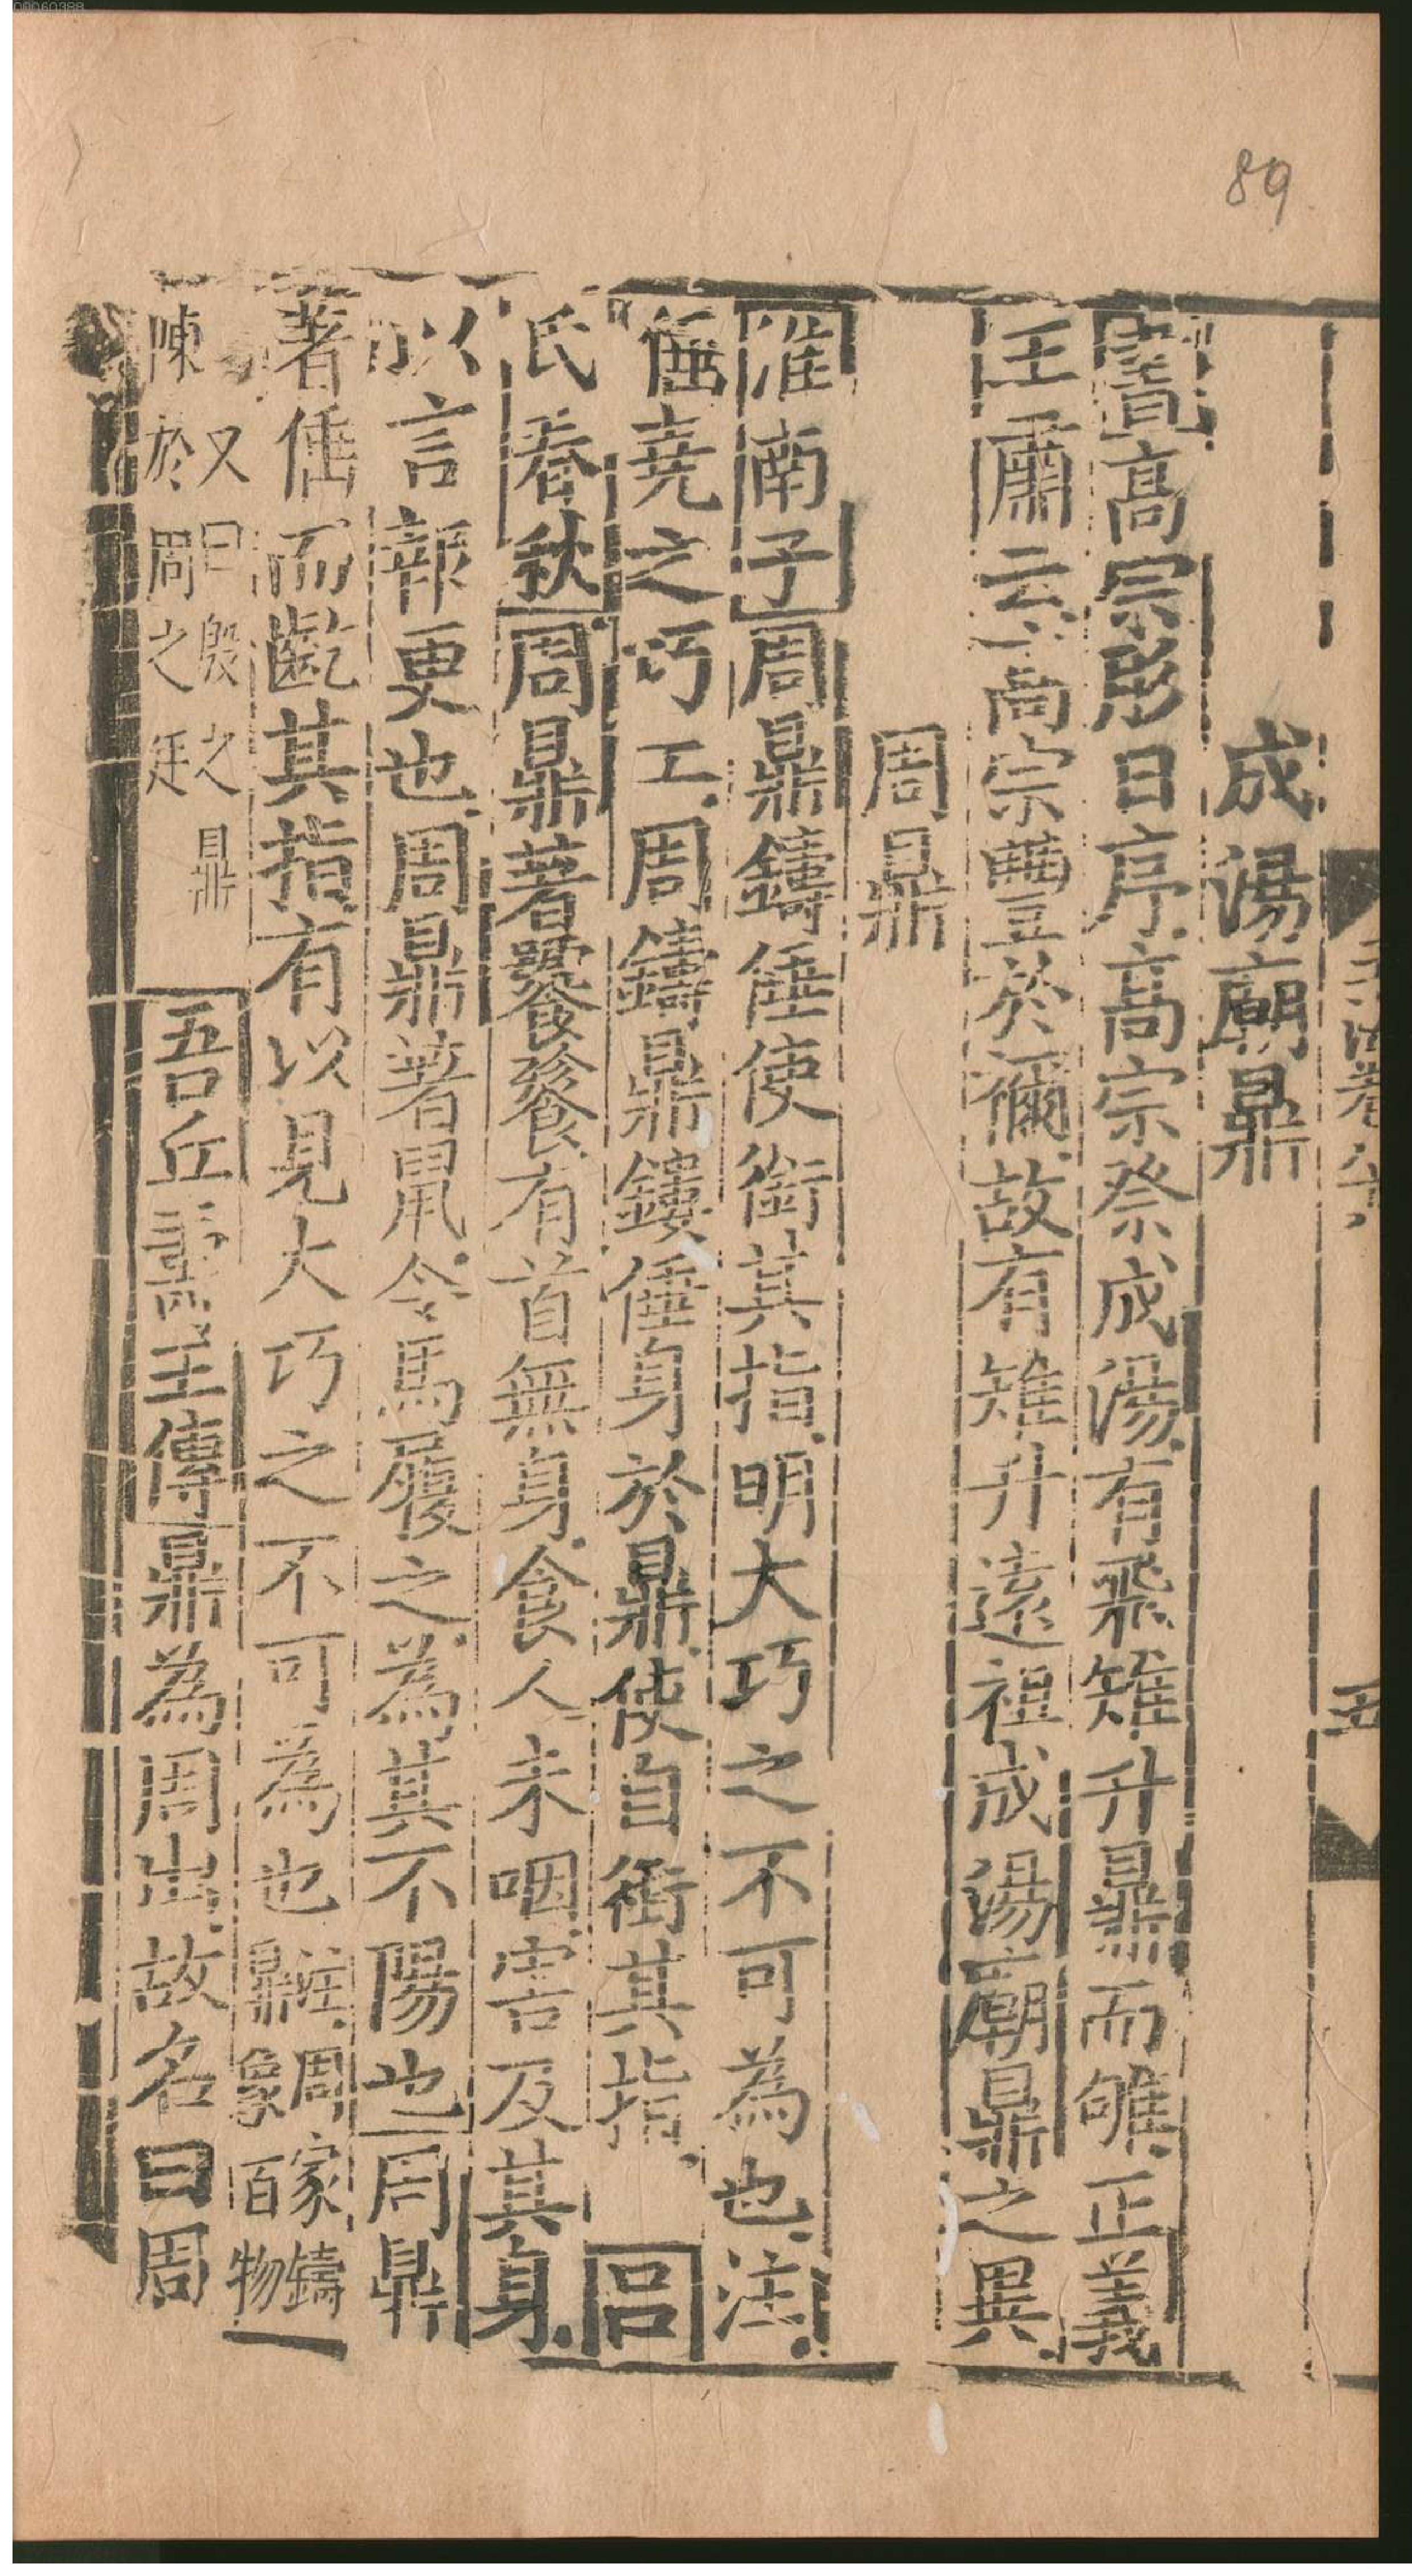 00060388
89
玉海卷八十八
五
成湯廟鼎
書高宗肜日序高宗祭成湯有飛雉升鼎而雊正義
王肅云高宗豐於禰故有雉升遠祖成湯廟鼎之異
周鼎
淮南子周鼎鑄倕使銜其指明大巧之不可為也注
倕堯之巧工周鑄鼎鏤倕身於鼎使自銜其指呂
氏春秋周鼎著饕餮有首無身食人未咽害及其身
以言報更也周鼎著鼠令馬履之為其不陽也周鼎
著倕而齕其指有以見大巧之不可為也註周家鑄
鼎象百物
又曰殷之鼎
陳於周之廷
吾丘壽王傳鼎為周出故名曰周